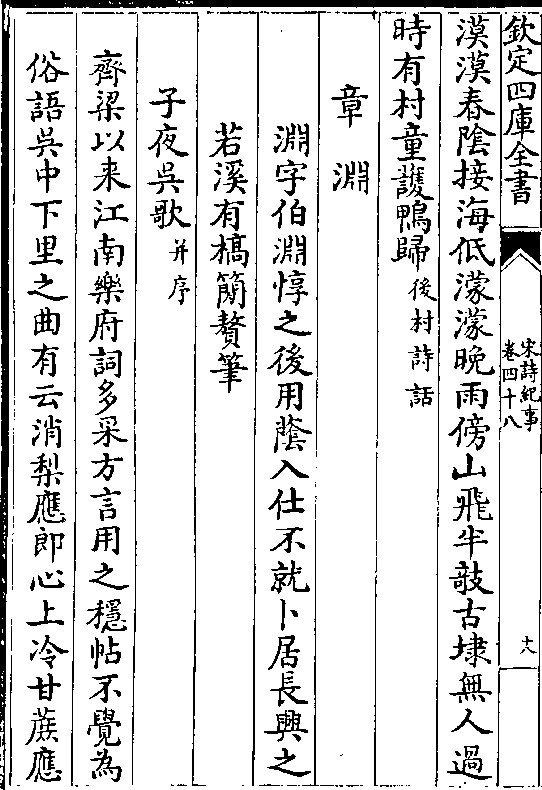 欽定四庫全書
宋詩紀事
卷四十八
十八
漠漠春陰接海低濛濛晚雨傍山飛半敧古埭無人過
時有村童護鴨歸後村詩話
章淵
淵字伯淵惇之後用蔭入仕不就卜居長興之
若溪有槁簡贅筆
子夜吳歌并序
齊梁以来江南樂府詞多采方言用之穩帖不覺為
俗語吳中下里之曲有云消梨應郎心上冷甘蔗應